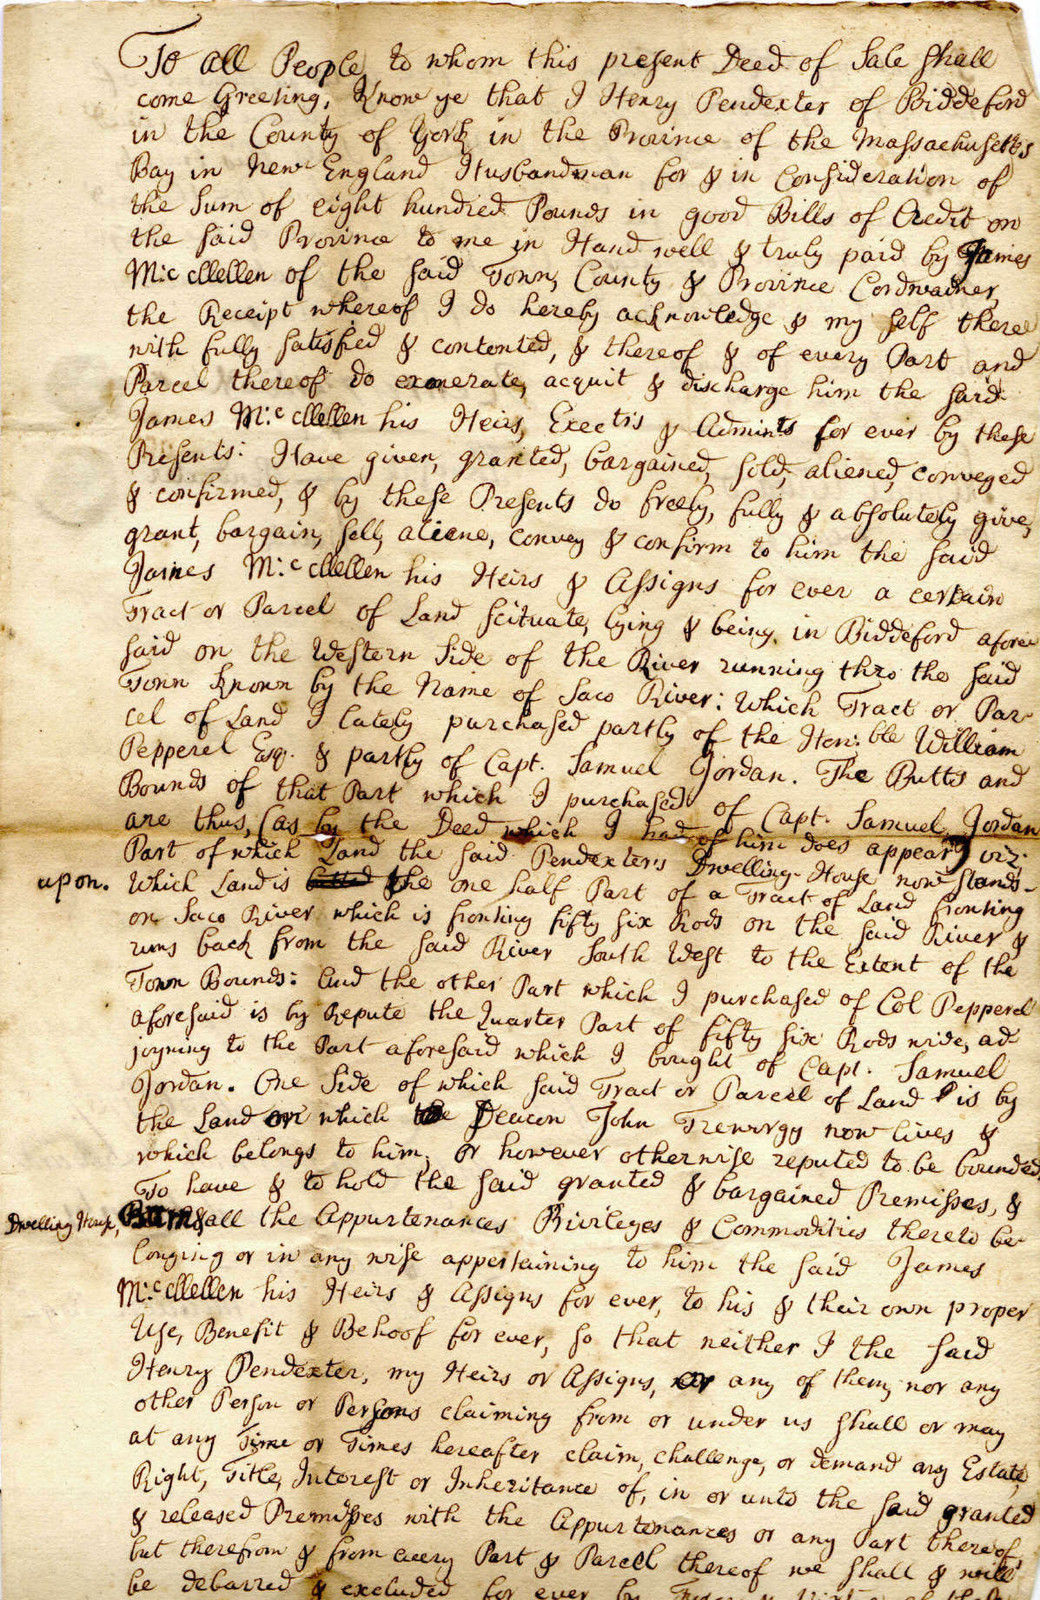 To all People to whom this present Deed of Sale shall
come Greeting, Know ye that I Henry Pendexter of Biddeford
in the County of York in the Province of the Massachusetts
Bay in New England Husbandman for & in Consideration of
the Sum of eight hundred Pounds in good Bills of Credit on
the said Province to me in Hand well & truly paid by James
Mc.cllellen of the said Town, County & Province Cordwainer,
the Receipt whereof I do hereby acknowledge & my self there
with fully satisfied & contented, & thereof & of every Part and
Parcel thereof do exonerate, acquit & discharge him the said
James Mc.cllellen his Heirs, Exectrs & Admints for ever by these
Presents: Have given, granted, bargained, sold, aliened, conveyed
& confirmed, & by these Presents do freely, fully & absolutely give,
grant, bargain, sell, aliene, convey & confirm to him the said
James Mc.cllellen his Heirs & Assigns for ever a certain
Tract or Parcel of Land scituate, lying & being in Biddeford afore
said on the Western Side of the River running thro the said
Town known by the Name of Saco River: Which Tract or Par
cel of Land I lately purchased partly of the Hon:ble William
Pepperel Esq. & partly of Capt. Samuel Jordan. The Butts and
Bounds of that Part which I purchased of Capt. Samuel Jordan
are thus, (as by the Deed which I had of him does appear) viz:
Part of which Land the said Pendexters Dwelling-House now stands-
upon. Which Land is the one half Part of a Tract of Land fronting
on Saco River which is fronting fifty six Rods on the said River &
runs back from the said River South West to the Extent of the
Town Bounds: And the other Part which I purchased of Col Pepperel
aforesaid is by Repute the Quarter Part of fifty six Rods wide, ad
joyning to the Part aforesaid which I bought of Capt. Samuel
Jordan. One Side of which said Tract or Parcel of Land is by
the Land on which the Deacon John Treworgy now lives &
which belongs to him, or however otherwise reputed to be bounded.
To have & to hold the said granted & bargained Premisses, &
Dwelling House, Barn & all the Appurtenances Privileges & Commodities thereto be
longing or in any wise appertaining to him the said James
Mc.cllellen his Heirs & Assigns for ever, to his & their own proper
Use, Benefit & Behoof for ever, so that neither I the said
Henry Pendexter, my Heirs or Assigns, or any of them, nor any
other Person or Persons claiming from or under us shall or may
at any Time or Times hereafter claim, challenge, or demand any Estate,
Right, Title, Interest or Inheritance of, in or unto the said granted
& released Premisses with the Appurtenances or any Part thereof,
but therefrom & from every Part & Parcell thereof we shall & will
be debarred & excluded for ever by